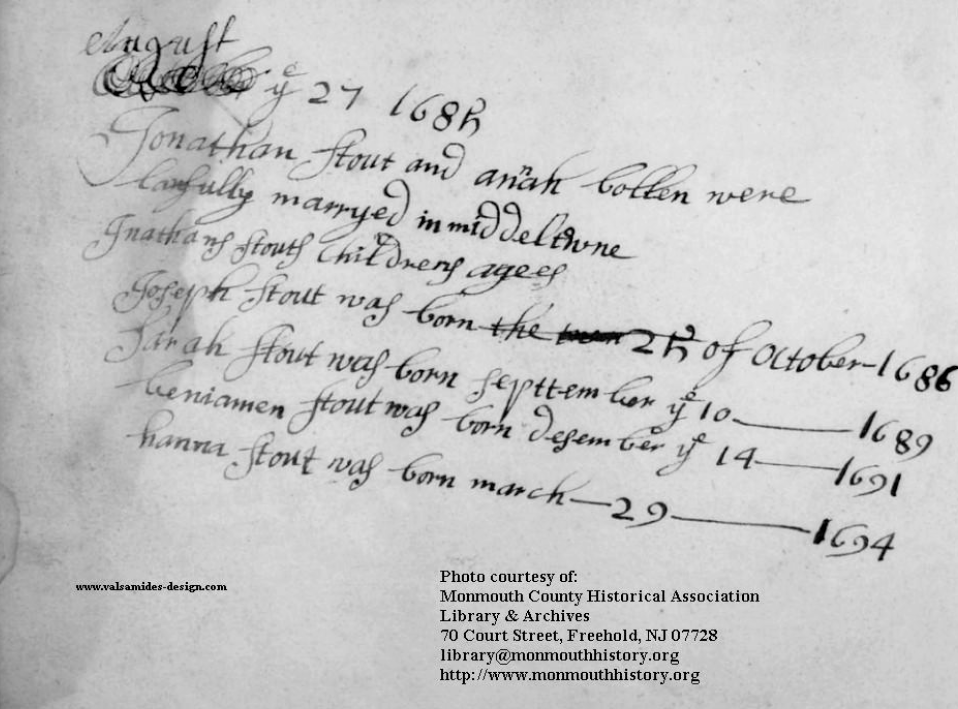 August
ye 27 1685
Jonathan stout and anah bollen were
lawfully marryed in middeltwne
Jnathans stouts childrens agees
Joseph stout was born the 25 of October 1686
Sarah stout was born septtember ye 10 1689
beniamen stout was born desember ye 14 1691
hanna stout was born march 29 1694
www.valsamides-design.com
Photo courtesy of:
Monmouth County Historical Association
Library & Archives
70 Court Street, Freehold, NJ 07728
library@monmouthhistory.org
http://www.monmouthhistory.org